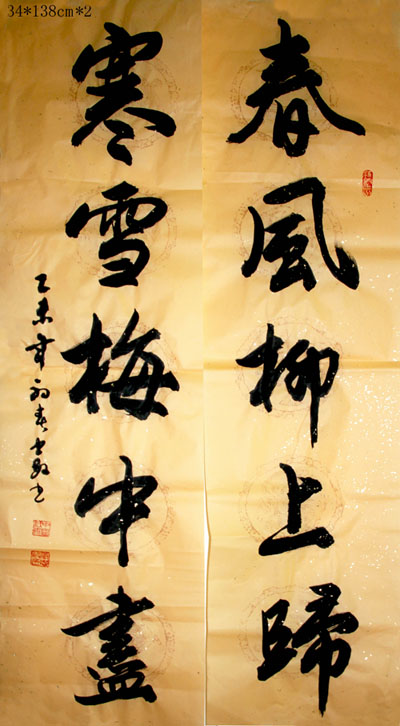 34*138cm*2
春風柳上歸
寒雪梅中盡
乙未年初春